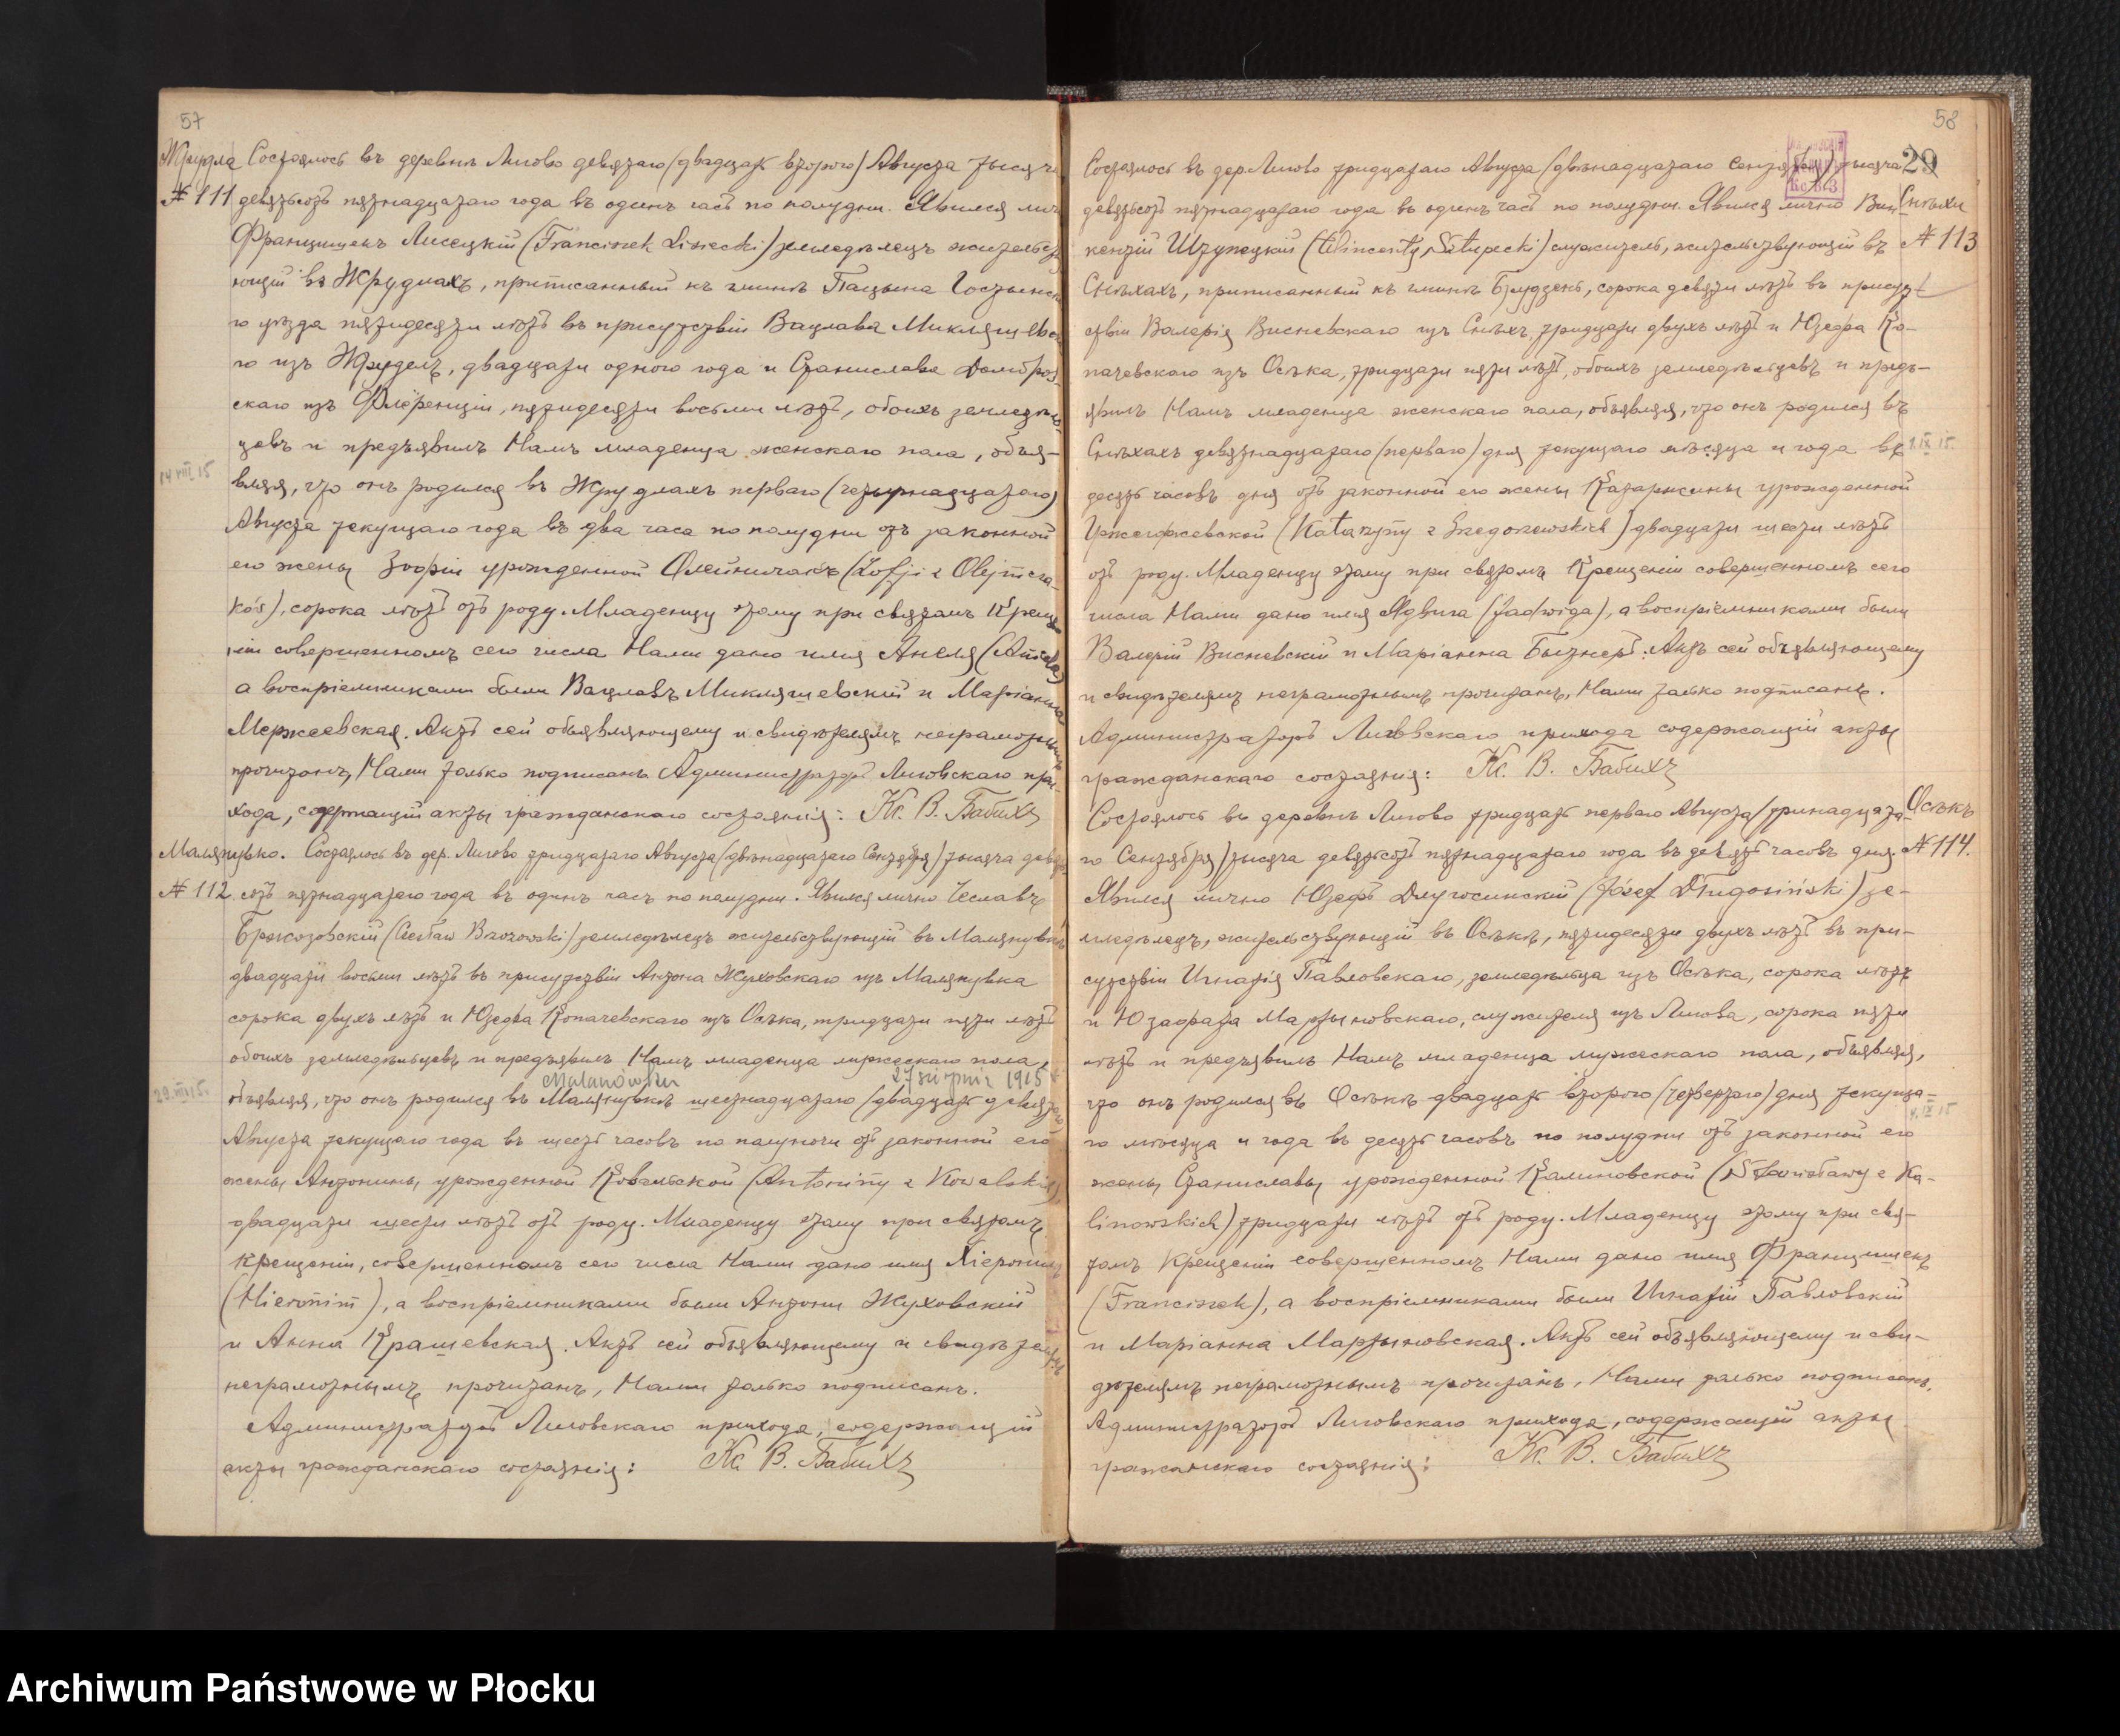 57
Жрудла
№ 111
Состоялось въ деревнѣ Лигово девятаго (двадцать второго) Августа тысяча
девятьсотъ пятнадцатаго года въ одинъ часъ по полудни. Явился лич
Францишекъ Лисецкій (Franciszek Lisiecki) земледѣлецъ жительст
ующій въ Жрудлахъ, приписанный къ гминѣ Пацына Гостынск
го уѣзда пятидесяти лѣтъ въ присутствіи Вацлава Микляшевска
го изъ Жруделъ, двадцати одного года и Станислава Домбров
скаго изъ Флѳренціи, пятидесяти восьми лѣтъ, обоихъ земледѣль
цевъ и предъявилъ Намъ младенца женскаго пола, объя-
14 VIII 15
вляя, что онъ родился въ Жрудлахъ перваго (четырнадцатаго)
Августа текущаго года въ два часа по полудни отъ законной
его жены Зофіи урожденной Олейничакъ (Zofji z Olejnicza-
ków), сорока лѣтъ отъ роду. Младенцу этому при святомъ Креще
ніи совершенномъ сего числа Нами дано имя Анеля (Aniela)
а воспріемниками были Вацлавъ Микляшевскій и Маріанна
Мержеевская. Актъ сей объявляющему и свидѣтелямъ неграмотнымъ
прочитанъ, Нами только подписанъ. Администраторъ Лиговскаго при-
хода, содержащій акты гражданскаго состоянія: Кс. В. Бабихъ
Малянувко.
№ 112
Состоялось въ дер. Лигово тридцатаго Августа (двѣнадцатаго Сентября) тысяча девять
сотъ пятнадцатаго года въ одинъ часъ по полудни. Явился лично Чеславъ
Бржозовскій (Czesław Brzozowski) земледѣлецъ жительствующій въ Малянувкѣ
двадцати восьми лѣтъ въ присутствіи Антона Жуховскаго изъ Малянувка
сорока двухъ лѣтъ и Юзефа Копачевскаго изъ Осѣка, тридцати пяти лѣтъ
обоихъ земледѣльцевъ и предъявилъ Намъ младенца мужескаго пола,
Malanówku 27 sierpnia 1915
29.VIII.15.
объявляя, что онъ родился въ Малянувкѣ шестнадцатаго (двадцать девята
Августа текущаго года въ шесть часовъ по полуночи отъ законной его
жены Антонины урожденной Ковальской (Antoniny z Kowalskich)
двадцати шести лѣтъ отъ роду. Младенцу этому при святомъ
Крещеніи, совершенномъ сего числа Нами дано имя Хіеронимъ
(Hieronim), а воспріемниками были Антони Жуховскій
и Анна Крашевская. Актъ сей объявляющему и свидѣтелямъ
неграмотнымъ прочитанъ, Нами только подписанъ.
Администраторъ Лиговскаго прихода, содержащій
акты гражданскаго состоянія: Кс. В. Бабихъ
58
29
Снѣхи
№ 113
Состоялось въ дер. Лигово тридцатаго Августа (двѣнадцатаго Сентября) тысяча
девятьсотъ пятнадцатаго года въ одинъ часъ по полудни. Явился лично Вин-
кентій Штупецкій (Wincenty Sztupecki) служитель, жительствующій въ
Снѣхахъ, приписанный къ гминѣ Брудзень, сорока девяти лѣтъ въ присут
ствіи Валерія Висневскаго изъ Снѣхъ, тридцати двухъ лѣтъ и Юзефа Ко-
пачевскаго изъ Осѣка, тридцати пяти лѣтъ, обоихъ земледѣльцевъ и предъ-
явилъ Намъ младенца женскаго пола, объявляя, что онъ родился въ
Снѣхахъ девятнадцатаго (перваго) дня текущаго мѣсяца и года въ
1.IX 15.
десять часовъ дня отъ законной его жены Катаржины урожденной
Гржегоржевской (Katarzyny z Grzegorzewskich) двадцати шести лѣтъ
отъ роду. Младенцу этому при святомъ Крещеніи совершенномъ сего
числа Нами дано имя Ядвига (Jadwiga), а воспріемниками были
Валерій Висневскій и Маріанна Бытнеръ. Актъ сей объявляющему
и свидѣтелямъ неграмотнымъ прочитанъ, Нами только подписанъ.
Администраторъ Лиговскаго прихода содержащій акты
гражданскаго состоянія: Кс. В. Бабихъ
Осѣкъ
№ 114.
Состоялось въ деревнѣ Лигово тридцать перваго Августа (тринадцата-
го Сентября) тысяча девятьсотъ пятнадцатаго года въ девять часовъ дня.
Явился лично Юзефъ Длугосинскій (Józef Długosiński) зе-
мледѣлецъ, жительствующій въ Осѣкѣ, пятидесяти двухъ лѣтъ въ при-
сутствіи Игнатія Павловскаго, земледѣльца изъ Осѣка, сорока лѣтъ
и Юзафата Мартыновскаго, служителя изъ Лигова, сорока пяти
лѣтъ и предъявилъ Намъ младенца мужескаго пола, объявляя,
что онъ родился въ Осѣкѣ двадцать второго (четвертаго) дня текуща-
4.IX 15
го мѣсяца и года въ десять часовъ по полудни отъ законной его
жены Станиславы урожденной Калиновской (Stanisławy z Ka-
linowskich) тридцати лѣтъ отъ роду. Младенцу этому при свя-
томъ Крещеніи совершенномъ Нами дано имя Францишекъ
(Franciszek), а воспріемниками были Игнатій Павловскій
и Маріанна Мартыновская. Актъ сей объявляющему и сви-
дѣтелямъ неграмотнымъ прочитанъ, Нами только подписанъ.
Администраторъ Лиговскаго прихода, содержащій акты
гражданскаго состоянія: Кс. В. Бабихъ
Archiwum Państwowe w Płocku